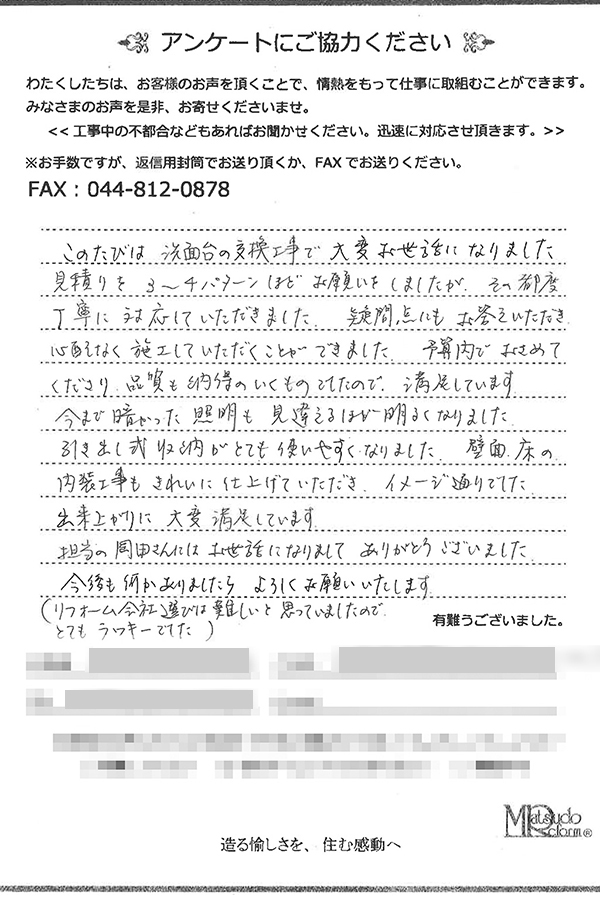 アンケートにご協力ください
わたくしたちは、お客様のお声を頂くことで、情熱をもって仕事に取組むことができます。
みなさまのお声を是非、お寄せくださいませ。
<< 工事中の不都合などもあればお聞かせください。迅速に対応させ頂きます。>>
※お手数ですが、返信用封筒でお送り頂くか、FAX でお送りください。
FAX：044-812-0878
このたびは 洗面台の交換工事で 大変お世話になりました
見積りを 3〜4パターンほど お願いをしましたが、その都度
丁寧に 対応していただきました. 疑問点にも お答えいただき
心配なく 施工していただくことができました. 予算内で おさめて
くださり 品質も 納得のいくものでしたので、満足しています
今まで 暗かった 照明も 見違えるほど 明るくなりました
引き出し式 収納が とても 使いやすくなりました. 壁面、床の
内装工事も きれいに 仕上げていただき、イメージ通りでした
出来上がりに 大変 満足しています
担当の 岡田さんには お世話になりまして ありがとうございました
今後も 何かありましたら よろしく お願いいたします
(リフォーム会社選びは 難しいと 思っていましたので
とても ラッキーでした )
有難うございました。
Matsudo
Reform®
造る愉しさを、住む感動へ